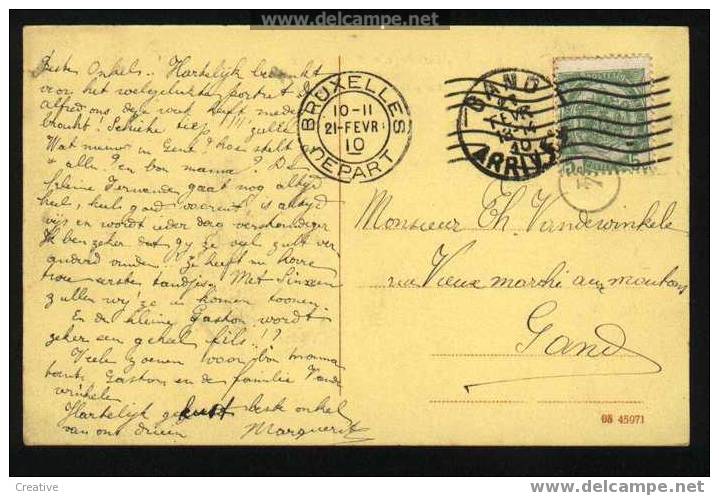 www.delcampe.net
Beste Onkels.! Hartelijk bedankt
voor het welgelukte portret
Alfred ons deze week heeft mede
bracht. Schieke tiep!!! zulle
Wat nieuws in Gene? hoe stelt
alles? en bon mama? De
kleine Fernanden gaat nog altyd
heel, heel goed vooruit is altyd
en wordt ieder dag verstandiger
Ik ben zeker dat gy ze veel zult ver
anderd vinden. Ze heeft nu hare
twee eersten tandjes. Met Sinxen
zullen wy ze u komen toonen.
En de kleine Gaston wordt
zeker een geheel fils!!?
Veele zoenen voor bon mama
tante Gaston en de familie Vande
winkele
Hartelijk gekust beste onkel
van ons drieën Marguerite
BRUXELLES
10-11
21-FEVR
10
DEPART
GAND
FEVR
10
ARRIVEE
Monsieur Th. Vandewinkele
rue Vieux marché aux moutons
Gand
08 45971
Creative
www.delcampe.net